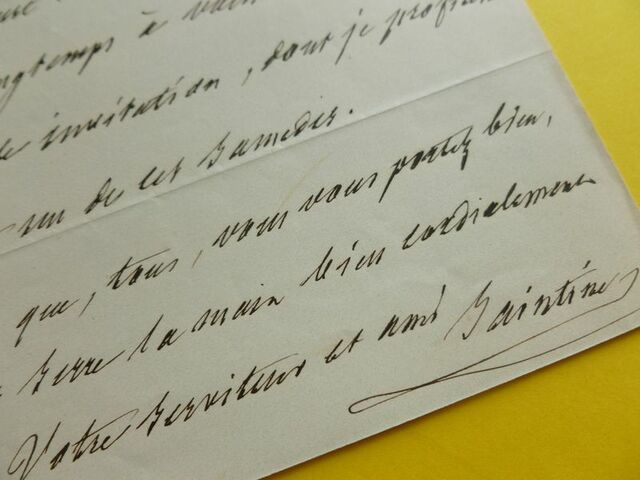 ngtemps à
invitation, dont je profiterai
un de ces Samedis.
que, tous, vous vous portez bien,
serre la main bien cordialement
Votre Serviteur et ami Saintine